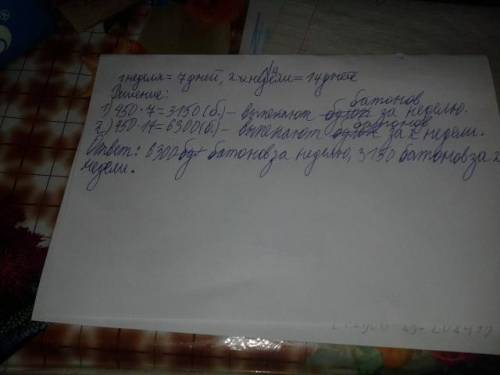 1 неделя = 7 дней, 2 недели = 14 дней
Решение:
батонов
1) 450 · 7 = 3150 (б.) - выпекают за неделю.
батонов
2) 450 · 14 = 6300 (б.) - выпекают за 2 недели.
Ответ: 6300 батонов за неделю, 3150 батонов за 2
недели.